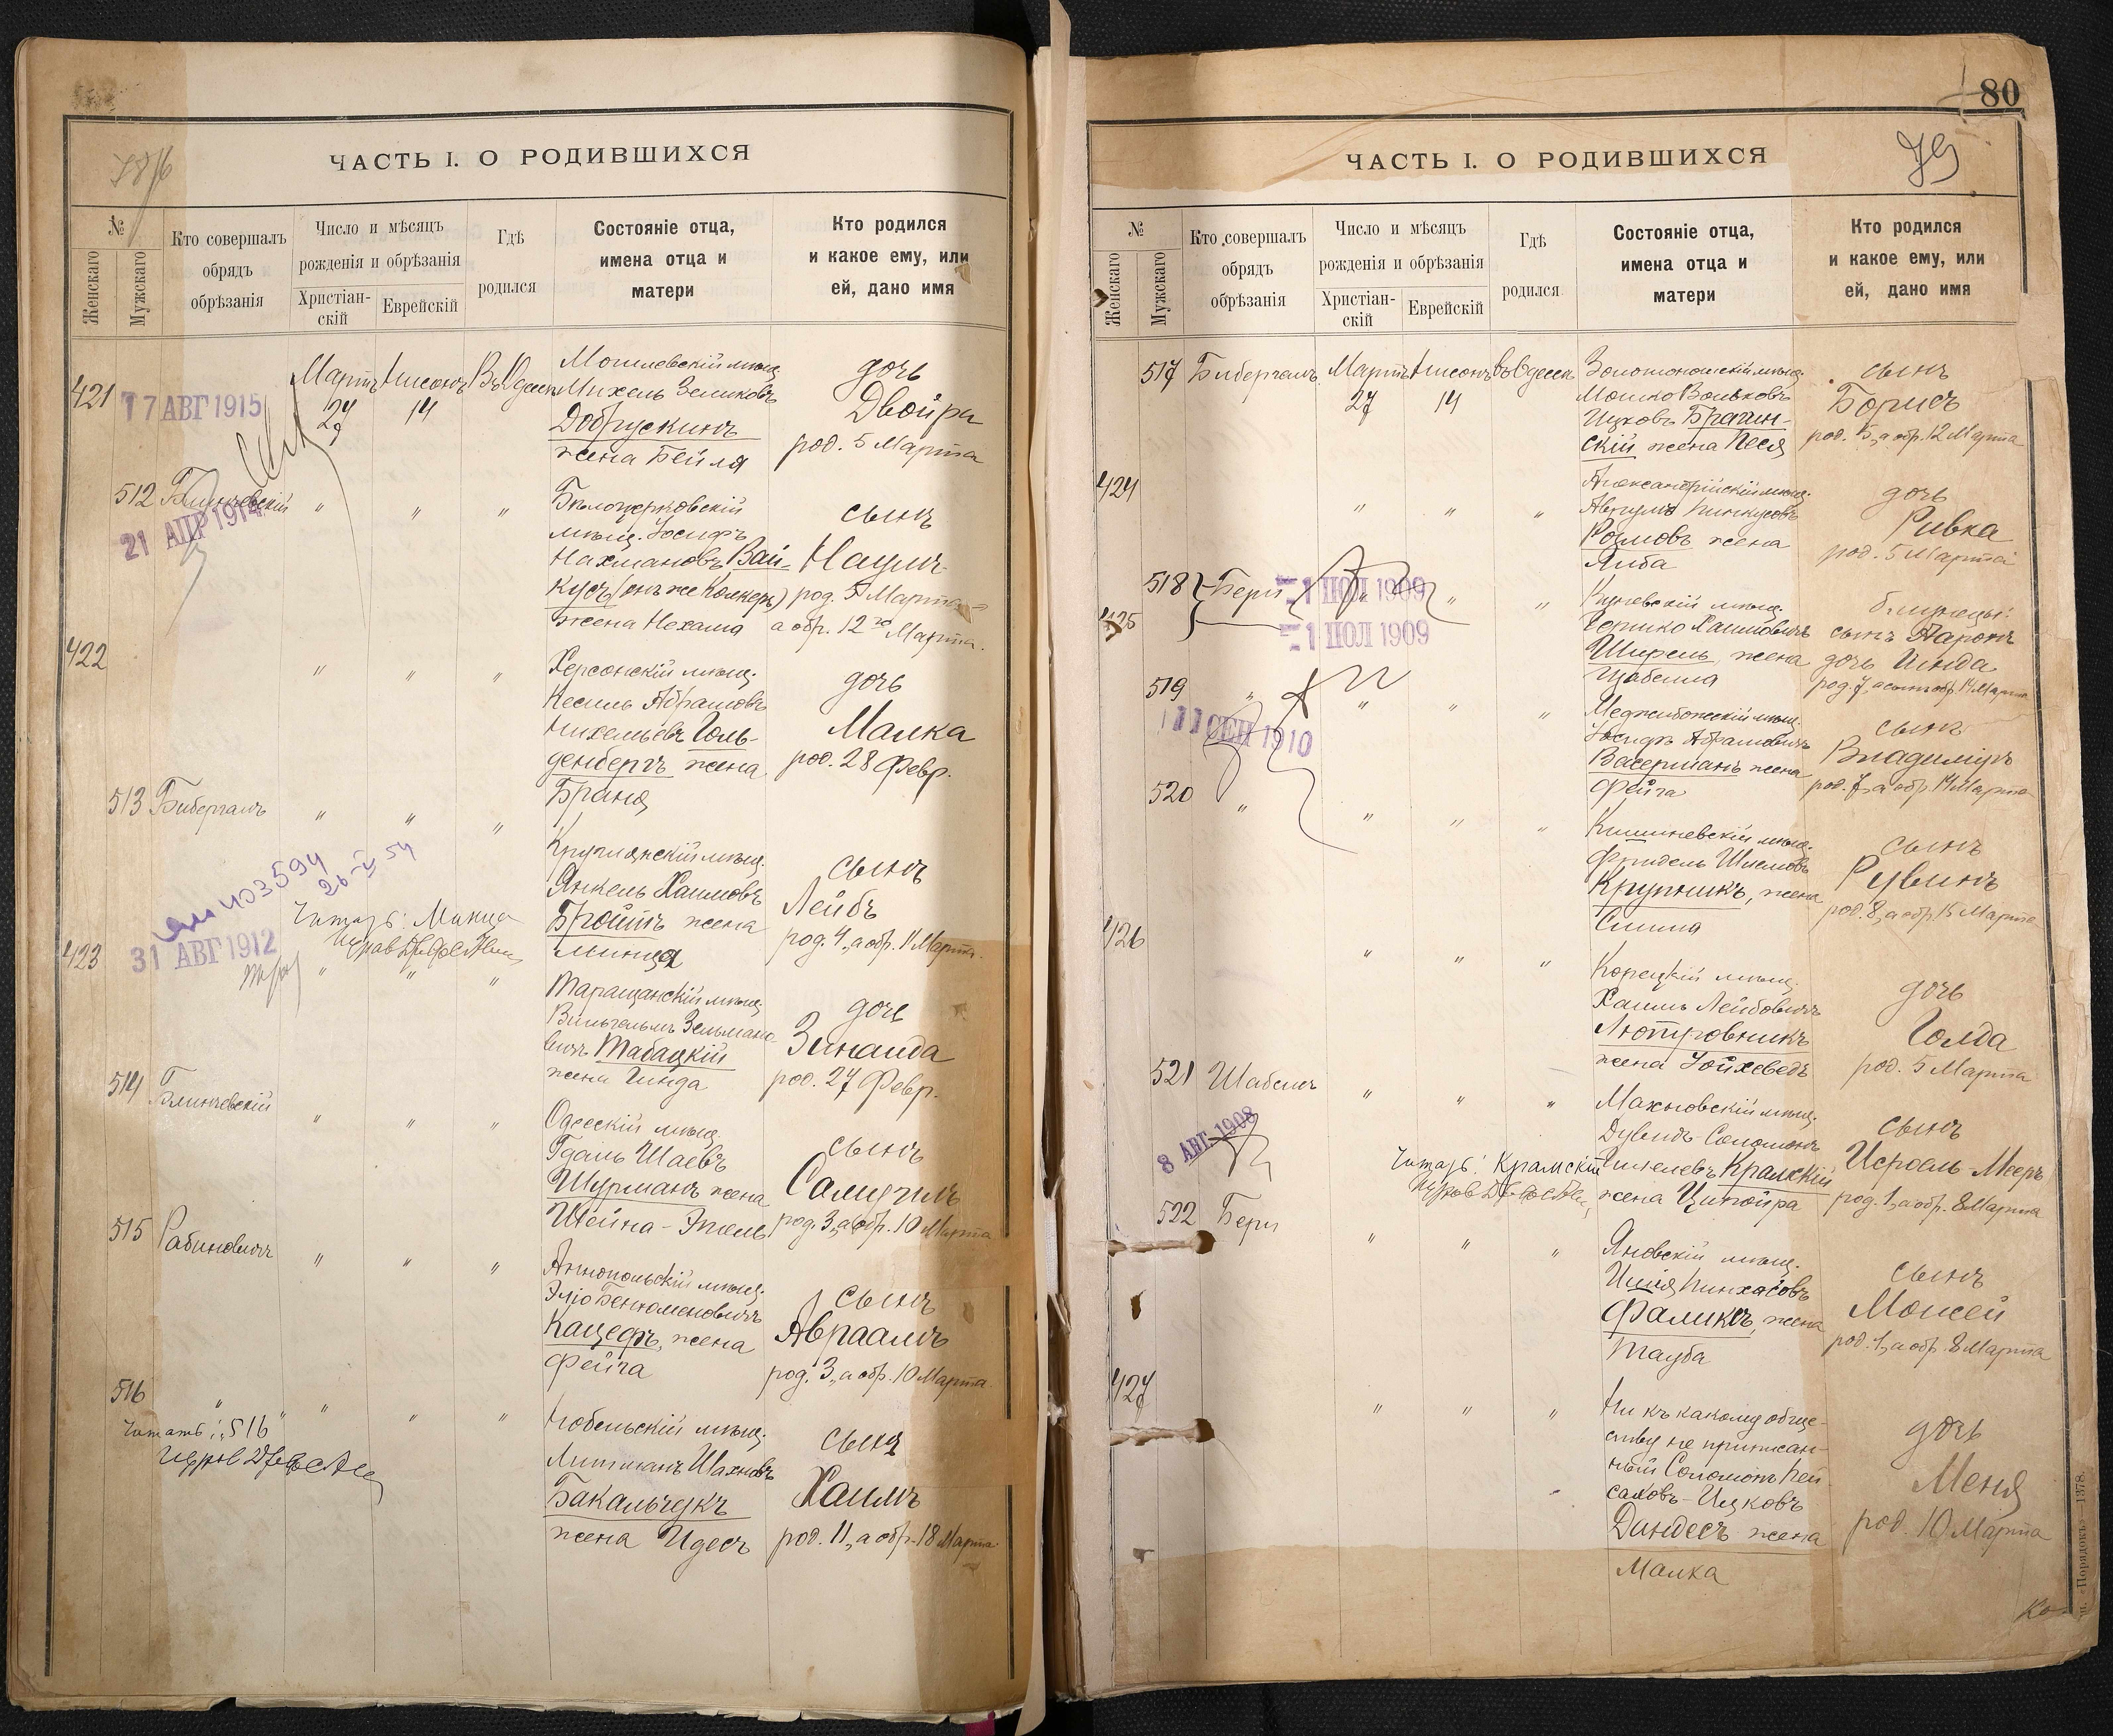 ЧАСТЬ I. О РОДИВШИХСЯ
№
Женскаго
Мужскаго
Кто совершалъ
обрядъ
обрѣзанія
Число и мѣсяцъ
рожденія и обрѣзанія
Христіан-
скій
Еврейскій
Гдѣ
родился
Состояніе отца,
имена отца и
матери
Кто родился
и какое ему, или
ей, дано имя
421
17 АВГ 1915
Мартъ
27
Нисонъ
14
Въ Одессѣ
Могилевскій мѣщ.
Михель Зеликовъ
Добрускинъ
жена Бейля
дочь
Двойра
род. 5 Марта
512
Блинчевскій
21 АПР 1914
" " "
Бѣлоцерковскій
мѣщ. Іосифъ
Нахмановъ Вай-
кусъ (онъ же Колкеръ)
жена Нехама
сынъ
Наумъ
род. 5 Марта
а обр. 12го Марта.
422
" " "
Херсонскій мѣщ.
Кесиль Абрамовъ
Михельевъ Голь-
денбергъ жена
Браня
дочь
Малка
род. 28 Февр.
513
Бибергалъ
" " "
Круглянскій мѣщ.
Янкель Хаимовъ
Бройтъ жена
Минця
сынъ
Лейбъ
род. 4, а обр. 11 Марта.
26-V 54
Читать: Минця
423
31 АВГ 1912
" " "
Таращанскій мѣщ.
Вильгельмъ Зельмано-
вичъ Табацкій
жена Гинда
дочь
Зинаида
род. 27 Февр.
514
Блинчевскій
" " "
Одесскій мѣщ.
Гдаль Шаевъ
Шурманъ жена
Шейна-Этель
сынъ
Самуилъ
род. 3, а обр. 10 Марта
515
Рабиновичъ
" " "
Аннопольскій мѣщ.
Эліо Беньюменовичъ
Кацефъ, жена
Фейга
сынъ
Авраамъ
род. 3, а обр. 10 Марта
516
" " " "
Читать: "516"
Любельскій мѣщ.
Литманъ Шахновъ
Бакальчукъ
жена Идесъ
сынъ
Хаимъ
род. 11, а обр. 18 Марта
80
79
ЧАСТЬ I. О РОДИВШИХСЯ
№
Женскаго
Мужскаго
Кто совершалъ
обрядъ
обрѣзанія
Число и мѣсяцъ
рожденія и обрѣзанія
Христіан-
скій
Еврейскій
Гдѣ
родился
Состояніе отца,
имена отца и
матери
Кто родился
и какое ему, или
ей, дано имя
517
Бибергалъ
Мартъ
27
Нисонъ
14
въ Одессѣ
Золотоношскій мѣщ.
Мошко Вольковъ
Ицковъ Брагин-
скій жена Песя
сынъ
Борисъ
род. 5, а обр. 12 Марта
424
" " "
Александрійскій мѣщ.
Аврумъ Пинкусовъ
жена
дочь
Ривка
род. 5 Марта
518
425
Беръ
1 ІЮЛ 1909
1 ІЮЛ 1909
" " "
мѣщ.
Гершко Хаимовичъ
жена
близнецы:
сынъ Аронъ
дочь Инда
519
"
11 СЕН 1910
" " "
Меджибожскій мѣщ.
Іосифъ Абрамовичъ
Васерманъ жена
Фейга
сынъ
Владиміръ
род. 7, а обр. 14 Марта
520
"
" " "
Кишиневскій мѣщ.
Фридель Шмелевъ
Крупникъ, жена
Сима
сынъ
Рувинъ
род. 8, а обр. 15 Марта
426
" " "
Корецкій мѣщ.
Хаимъ Лейбовичъ
Лютровникъ
жена Іойхеведъ
дочь
Голда
род. 5 Марта
521
Шабель
8 АВГ 1908
" " "
Махновскій мѣщ.
Дувидъ-Соломонъ
Крамскій
жена Ципойра
сынъ
Исроэль-Мееръ
род. 1, а обр. 8 Марта
Читать: Крамскій
522
Беръ
" " "
Яновскій мѣщ.
Пинхасовъ
Фаликъ, жена
Тауба
сынъ
Моисей
род. 1, а обр. 8 Марта
427
" " "
Ни къ какому обще-
ству не приписан-
ный Соломонъ Пей-
саховъ-Ицковъ
Дандесъ жена
Малка
дочь
Меня
род. 10 Марта
"Порядокъ" 1378.